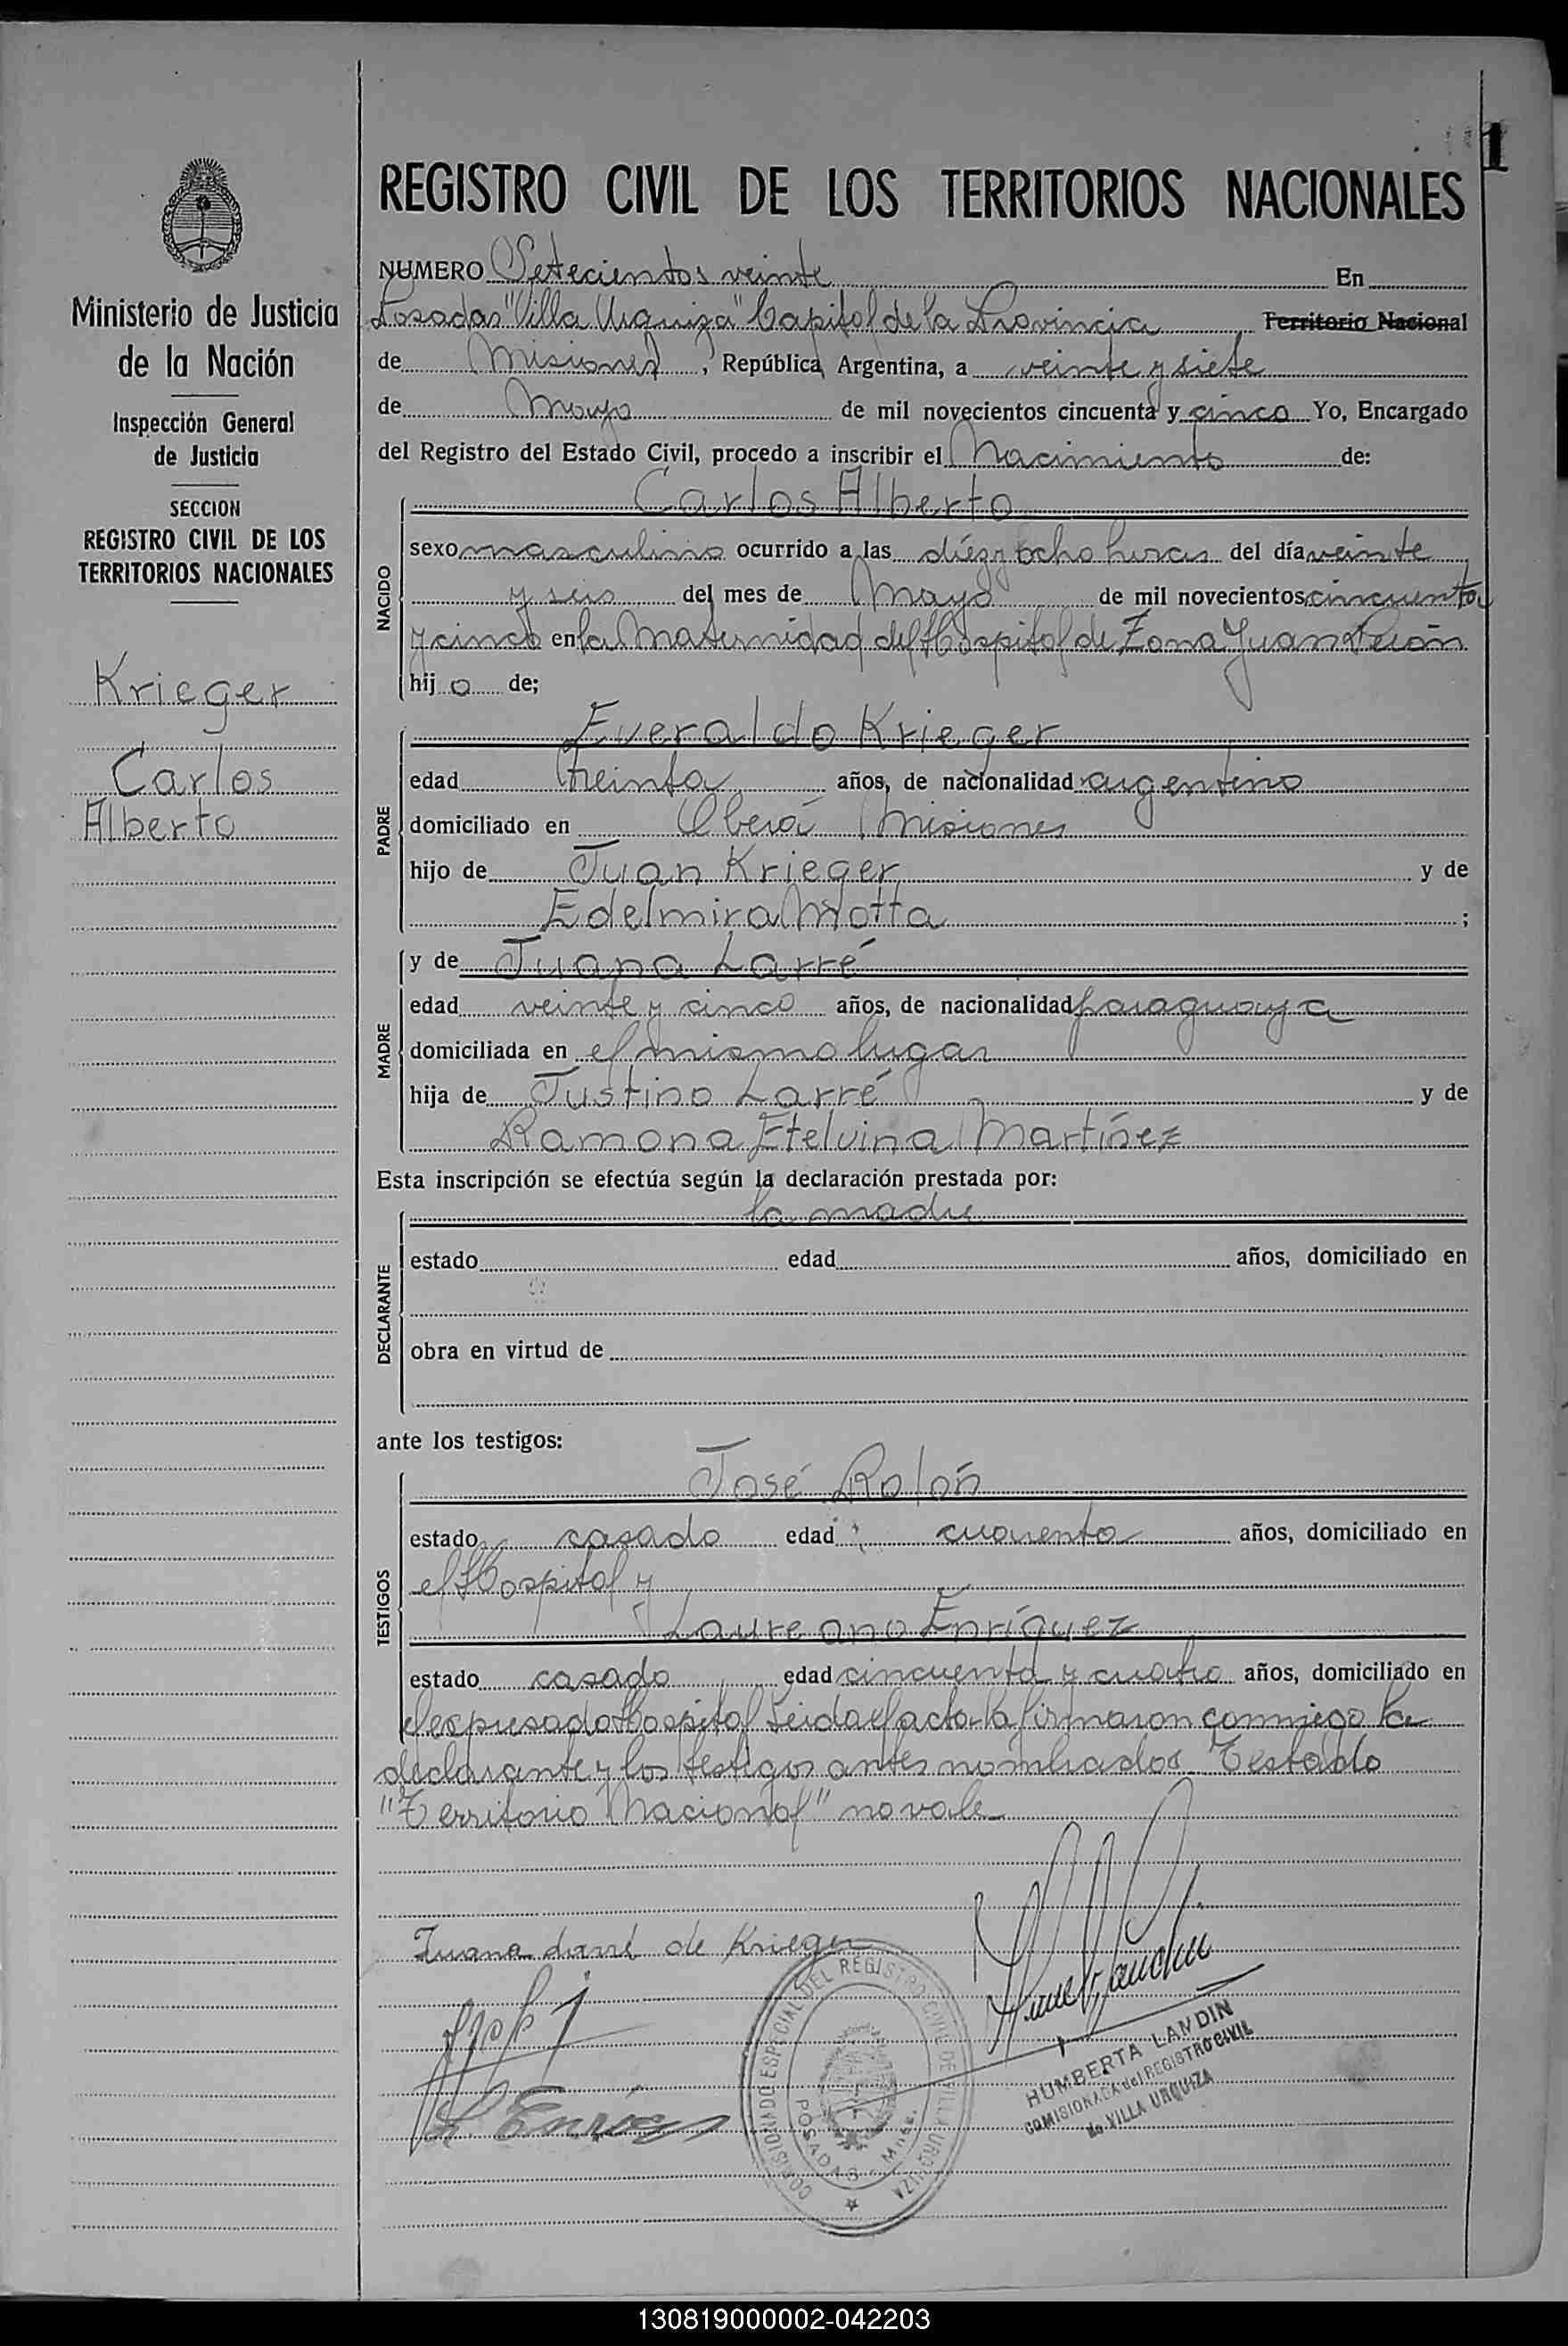 1
Ministerio de Justicia
de la Nación
Inspección General
de Justicia
SECCION
REGISTRO CIVIL DE LOS
TERRITORIOS NACIONALES
Krieger
Carlos
Alberto
REGISTRO CIVIL DE LOS TERRITORIOS NACIONALES
NUMERO Setecientos veinte En
Posadas "Villa Urquiza" Capital de la Provincia Territorio Nacional
de Misiones, República Argentina, a veinte y siete
de Mayo de mil novecientos cincuenta y cinco Yo, Encargado
del Registro del Estado Civil, procedo a inscribir el Nacimiento de:
NACIDO
Carlos Alberto
sexo masculino ocurrido a las diez y ocho horas del día veinte
y seis del mes de Mayo de mil novecientos cincuenta
y cinco en la Maternidad del Hospital de Zona Juan Perón
hijo de;
PADRE
Everaldo Krieger
edad treinta años, de nacionalidad argentino
domiciliado en Oberá Misiones
hijo de Juan Krieger y de
Edelmira Motta ;
MADRE
y de Juana Larré
edad veinte y cinco años, de nacionalidad paraguaya
domiciliada en el mismo lugar
hija de Justino Larré y de
Ramona Etelvina Martínez
Esta inscripción se efectúa según la declaración prestada por:
DECLARANTE
la madre
estado edad años, domiciliado en
obra en virtud de
ante los testigos:
TESTIGOS
José Rolón
estado casado edad cuarenta años, domiciliado en
el Hospital y
Laureano Enríquez
estado casado edad cincuenta y cuatro años, domiciliado en
el expresado Hospital Leida el acta la firmaron conmigo la
declarante y los testigos antes nombrados. Testado
"Territorio Nacional" no vale
Juana Larré de Krieger
COMISIONADO ESPECIAL DEL REGISTRO CIVIL DE VILLA URQUIZA
POSADAS Mnes.
HUMBERTA LANDIN
COMISIONADA del REGISTRO CIVIL
de VILLA URQUIZA
130819000002-042203